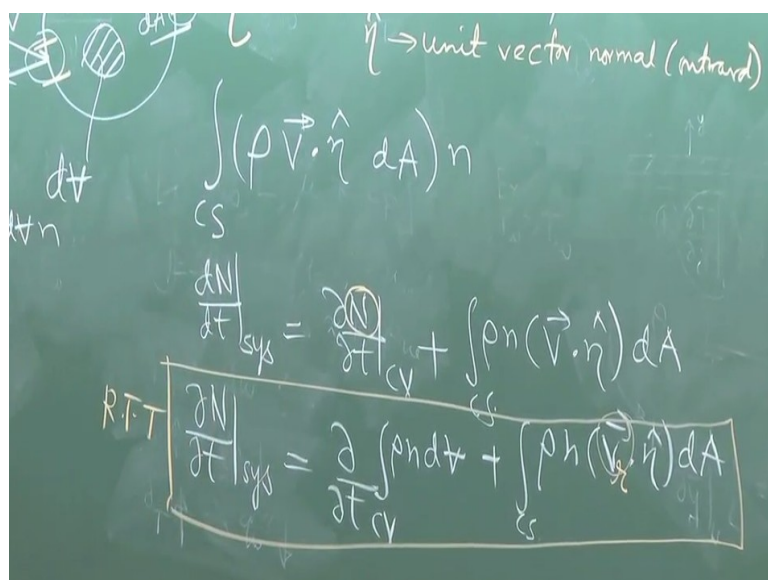 dA
η̂ → unit vector normal (outward)
∫_CS (ρ V⃗·η̂ dA) n
d∀
d∀n
dN/dt|sys = ∂N/∂t|CV + ∫_CS ρn(V⃗·η̂) dA
R.T.T
∂N/∂t|sys = ∂/∂t ∫_CV ρn d∀ + ∫_CS ρn(V⃗r·η̂) dA